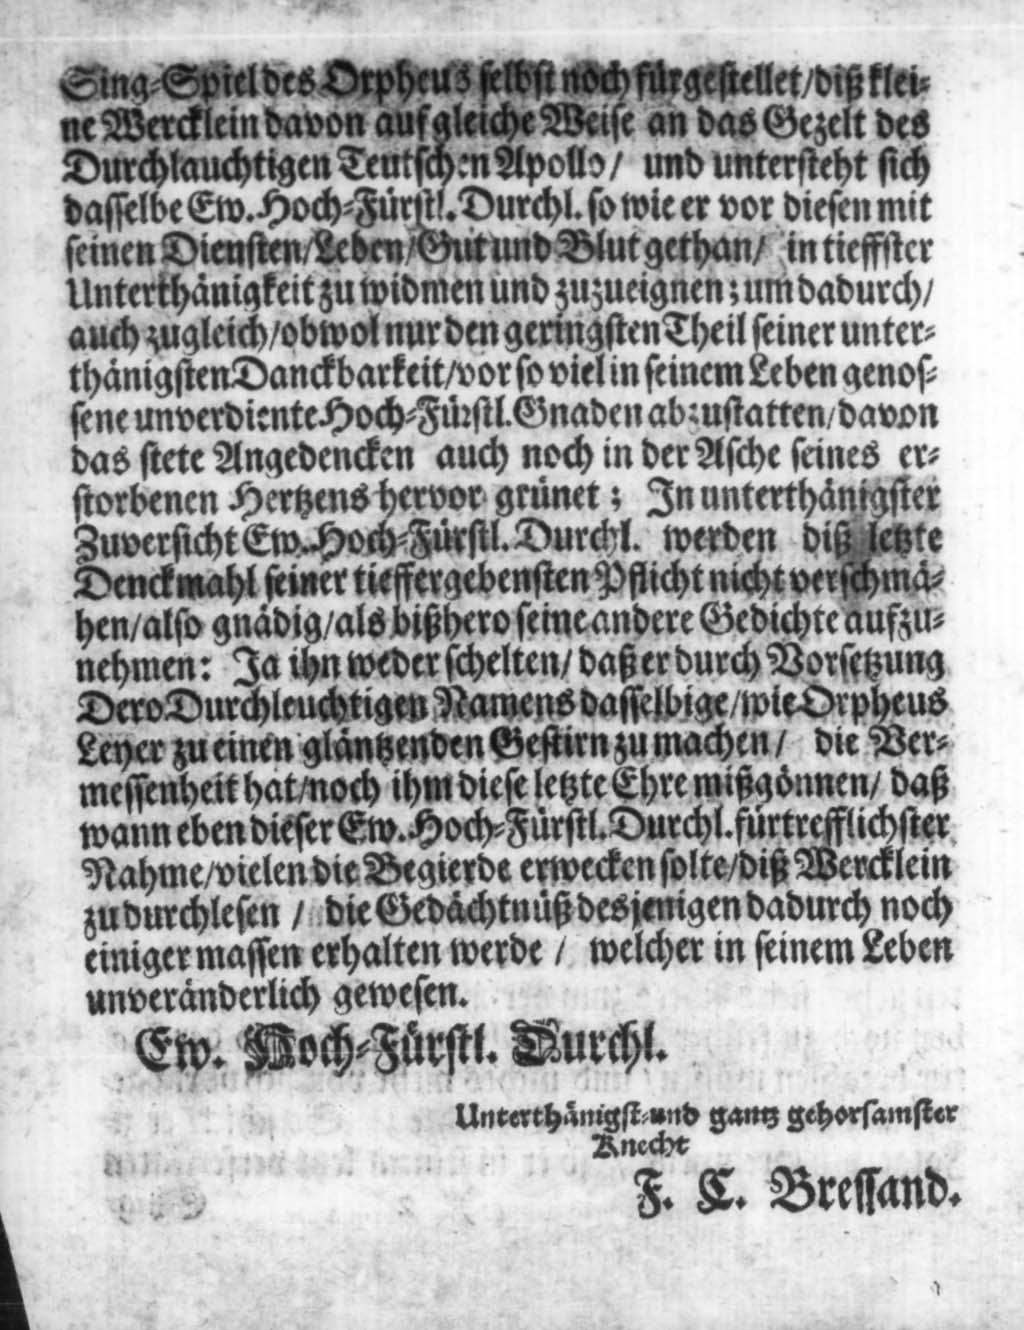 Sing-Spiel des Orpheus selbst noch fürgestellet/diß klei-
ne Wercklein davon auf gleiche Weise an das Gezelt des
Durchlauchtigen Teutschen Apollo/ und untersteht sich
dasselbe Ew. Hoch-Fürstl. Durchl. so wie er vor diesen mit
seinen Diensten/Leben/Gut und Blut gethan/ in tieffster
Unterthänigkeit zu widmen und zuzueignen; um dadurch/
auch zugleich/obwol nur den geringsten Theil seiner unter-
thänigsten Danckbarkeit/vor so viel in seinem Leben genos-
sene unverdiente Hoch-Fürstl. Gnaden abzustatten/davon
das stete Angedencken auch noch in der Asche seines er-
storbenen Hertzens hervor grünet; In unterthänigster
Zuversicht Ew. Hoch-Fürstl. Durchl. werden diß letzte
Denckmahl seiner tieffergebensten Pflicht nicht verschmä-
hen/also gnädig/als bißhero seine andere Gedichte aufzu-
nehmen: Ja ihn weder schelten/ daß er durch Vorsetzung
Dero Durchleuchtigen Namens dasselbige/wie Orpheus
Leyer zu einen gläntzenden Gestirn zu machen/ die Ver-
messenheit hat/noch ihm diese letzte Ehre mißgönnen/ daß
wann eben dieser Ew. Hoch-Fürstl. Durchl. fürtrefflichster
Nahme/vielen die Begierde erwecken solte/diß Wercklein
zu durchlesen / die Gedächtnüß desjenigen dadurch noch
einiger massen erhalten werde / welcher in seinem Leben
unveränderlich gewesen.
Ew. Hoch-Fürstl. Durchl.
Unterthänigst-und gantz gehorsamster
Knecht
F. C. Bressand.